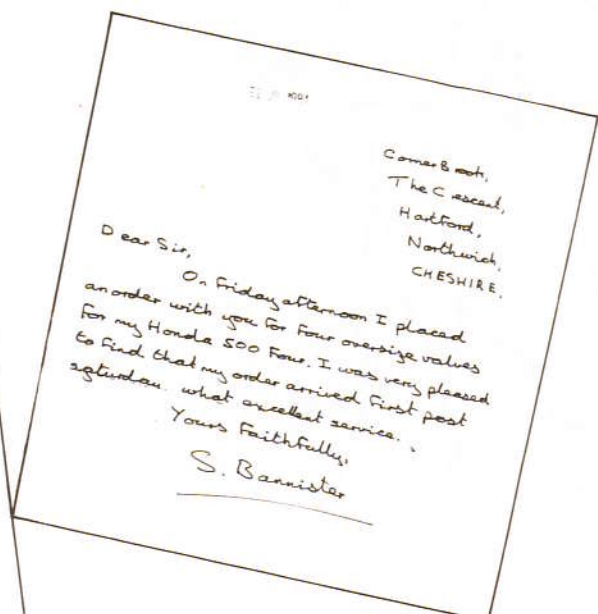 Corner Brook,
The Crescent,
Hartford,
Northwich,
CHESHIRE.
Dear Sir,
On Friday afternoon I placed
an order with you for four oversize valves
for my Honda 500 Four. I was very pleased
to find that my order arrived first post
saturday. what excellent service.
Yours Faithfully,
S. Bannister